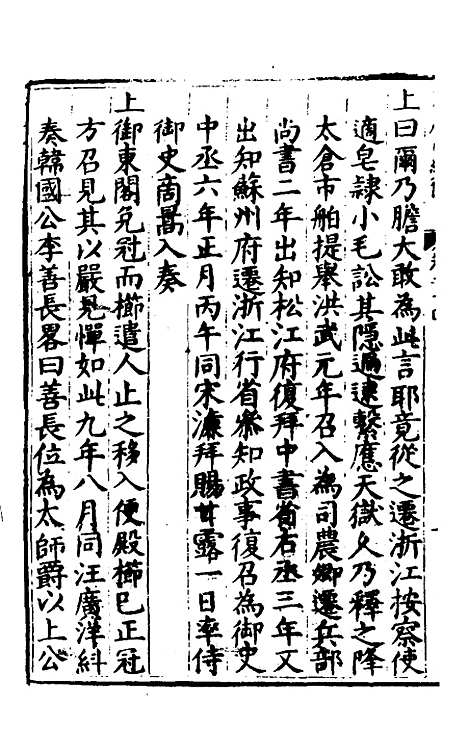 上曰爾乃膽大敢為此言耶竟從之遷浙江按察使
適皂隸小毛訟其隱遏逮繫應天獄久乃釋之降
太倉市舶提舉洪武元年召入為司農卿遷兵部
尚書二年出知松江府復拜中書省右丞三年又
出知蘇州府遷浙江行省叅知政事復召為御史
中丞六年正月丙午同宋濂拜賜甘露一日率侍
御史商暠入奏
上御東閣免冠而櫛遣人止之移入便殿櫛已正冠
方召見其以嚴見憚如此九年八月同汪廣洋糾
奏韓國公李善長畧曰善長位為太師爵以上公